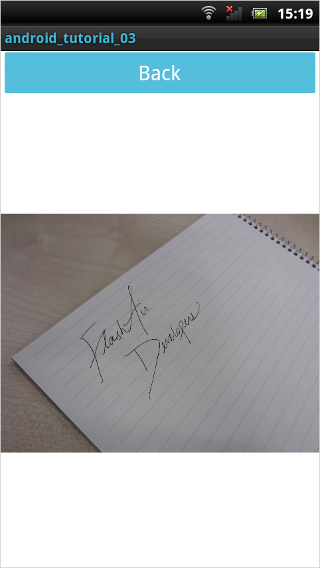 15:19
android_tutorial_03
Back
FlashAir
Developers